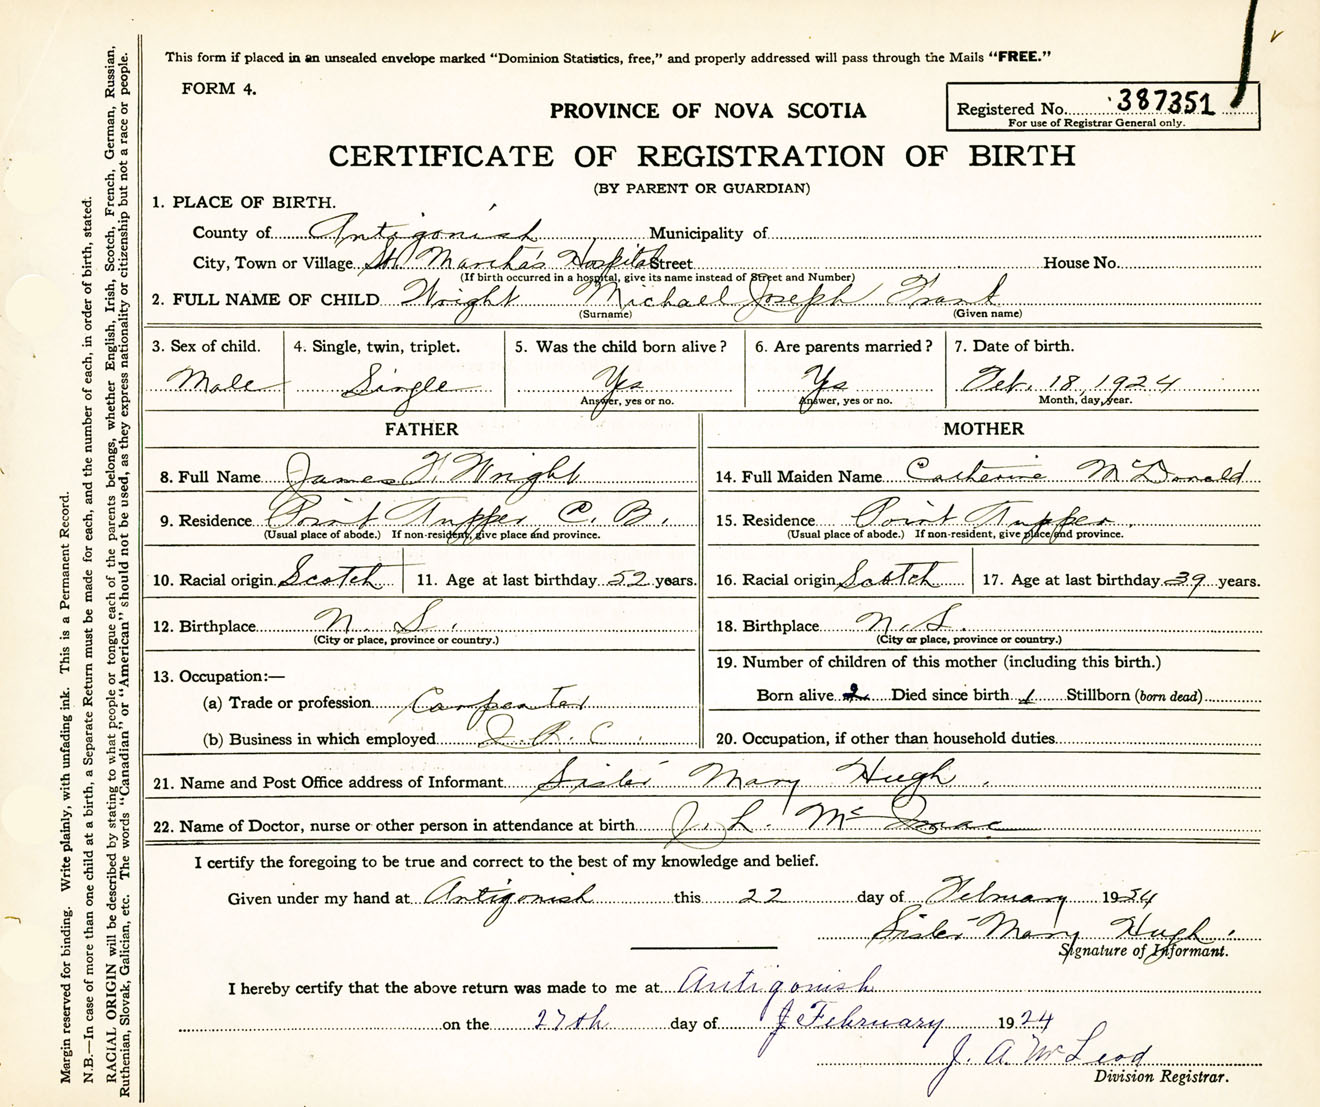 This form if placed in an unsealed envelope marked "Dominion Statistics, free," and properly addressed will pass through the Mails "FREE."
FORM 4.
PROVINCE OF NOVA SCOTIA
Registered No. 387351
For use of Registrar General only.
CERTIFICATE OF REGISTRATION OF BIRTH
(BY PARENT OR GUARDIAN)
1. PLACE OF BIRTH.
County of Antigonish Municipality of
City, Town or Village St. Martha's Hospital Street House No.
(If birth occurred in a hospital, give its name instead of Street and Number)
2. FULL NAME OF CHILD Wright Michael Joseph Grant
(Surname) (Given name)
3. Sex of child. 4. Single, twin, triplet. 5. Was the child born alive? 6. Are parents married? 7. Date of birth.
Male Single Yes Yes Feb. 18, 1924
Answer, yes or no. Answer, yes or no. Month, day, year.
FATHER MOTHER
8. Full Name James Wright 14. Full Maiden Name Catherine McDonald
9. Residence Point Tupper, C. B. 15. Residence Point Tupper.
(Usual place of abode.) If non-resident, give place and province. (Usual place of abode.) If non-resident, give place and province.
10. Racial origin Scotch 11. Age at last birthday 52 years. 16. Racial origin Scotch 17. Age at last birthday 39 years.
12. Birthplace N. S. 18. Birthplace N. S.
(City or place, province or country.) (City or place, province or country.)
13. Occupation:— 19. Number of children of this mother (including this birth.)
(a) Trade or profession Carpenter Born alive 2 Died since birth 1 Stillborn (born dead)
(b) Business in which employed 20. Occupation, if other than household duties
21. Name and Post Office address of Informant Sister Mary Hugh.
22. Name of Doctor, nurse or other person in attendance at birth J. L. McIsaac
I certify the foregoing to be true and correct to the best of my knowledge and belief.
Given under my hand at Antigonish this 22 day of February 1924
Sister Mary Hugh.
Signature of Informant.
I hereby certify that the above return was made to me at Antigonish
on the 27th day of February 1924
J. A. McLeod
Division Registrar.
Margin reserved for binding. Write plainly, with unfading ink. This is a Permanent Record.
N.B.—In case of more than one child at a birth, a Separate Return must be made for each, and the number of each, in order of birth, stated.
RACIAL ORIGIN will be described by stating to what people or tongue each of the parents belongs, whether English, Irish, Scotch, French, German, Russian,
Ruthenian, Slovak, Galician, etc. The words "Canadian" or "American" should not be used, as they express nationality or citizenship but not a race or people.